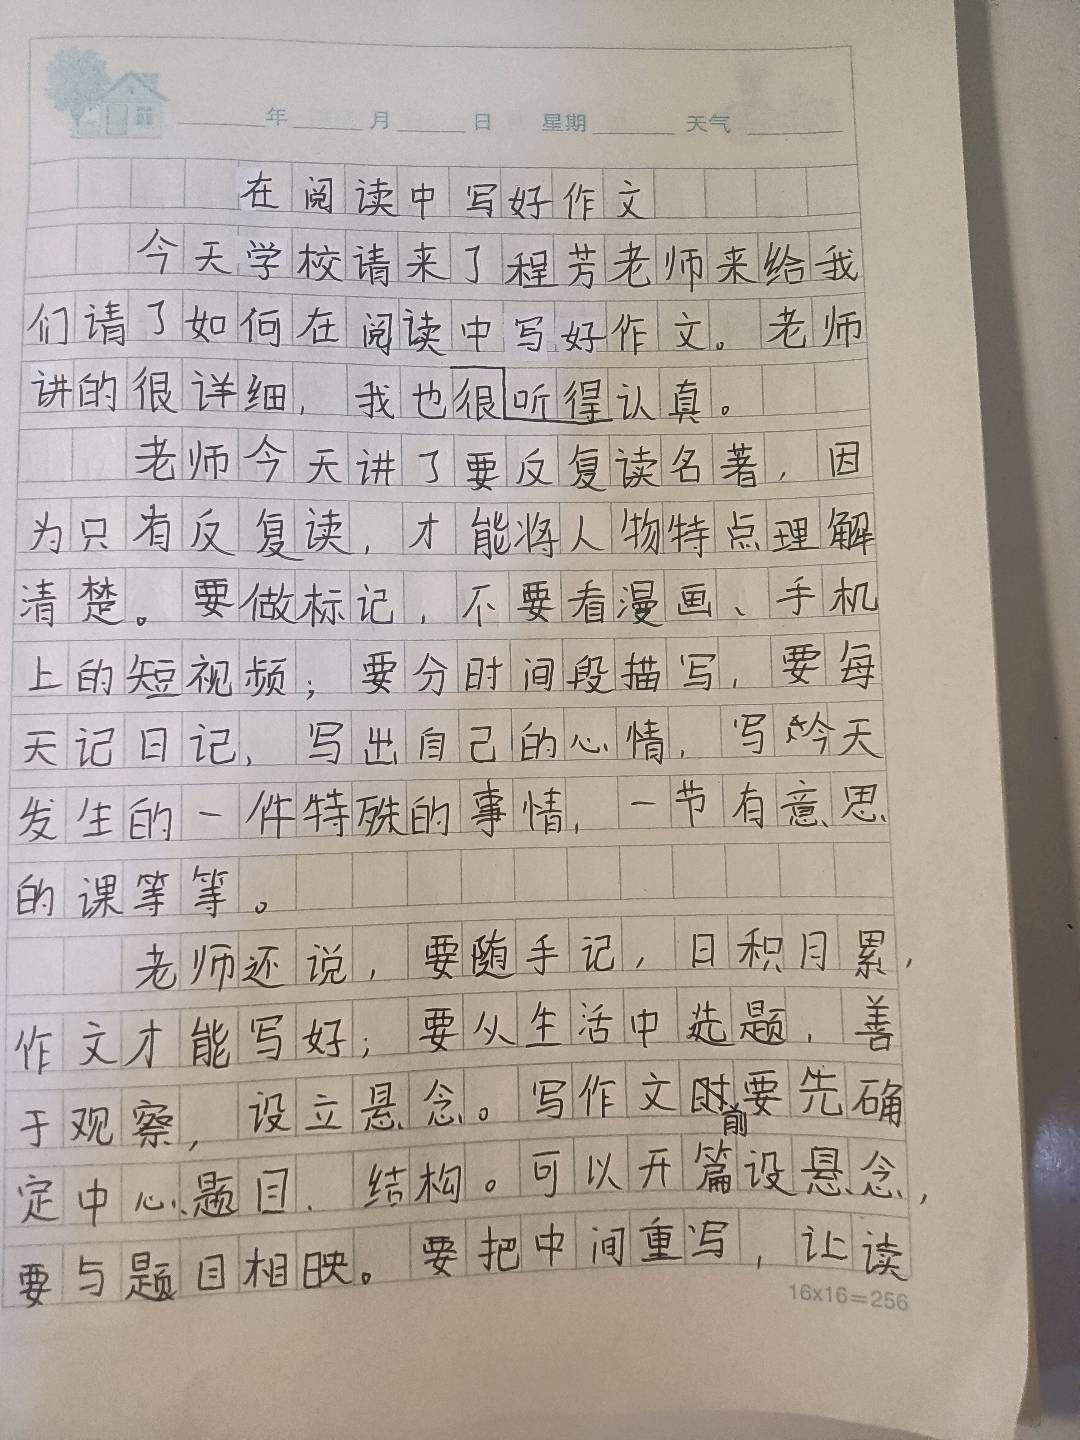 年 月 日 星期 天气
在阅读中写好作文
今天学校请来了程芳老师来给我
们请了如何在阅读中写好作文。老师
讲的很详细,我也很听得认真。
老师今天讲了要反复读名著,因
为只有反复读,才能将人物特点理解
清楚。要做标记,不要看漫画、手机
上的短视频;要分时间段描写,要每
天记日记,写出自己的心情,写今天
发生的一件特殊的事情,一节有意思
的课等等。
老师还说,要随手记,日积月累,
作文才能写好;要从生活中选题,善
于观察,设立悬念。写作文前要先确
定中心、题目、结构。可以开篇设悬念,
要与题目相映。要把中间重写,让读
16x16=256